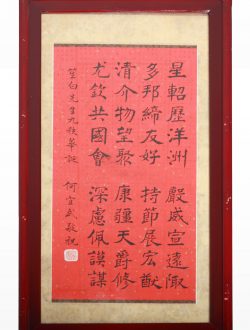 星軺歷洋洲 嚴威宣遠陬
多邦締友好 持節展宏猷
清介物望聚 康疆天爵修
尤欽共國會 深慮佩謨謀
笙白先生九秩華誕 何宜武敬祝